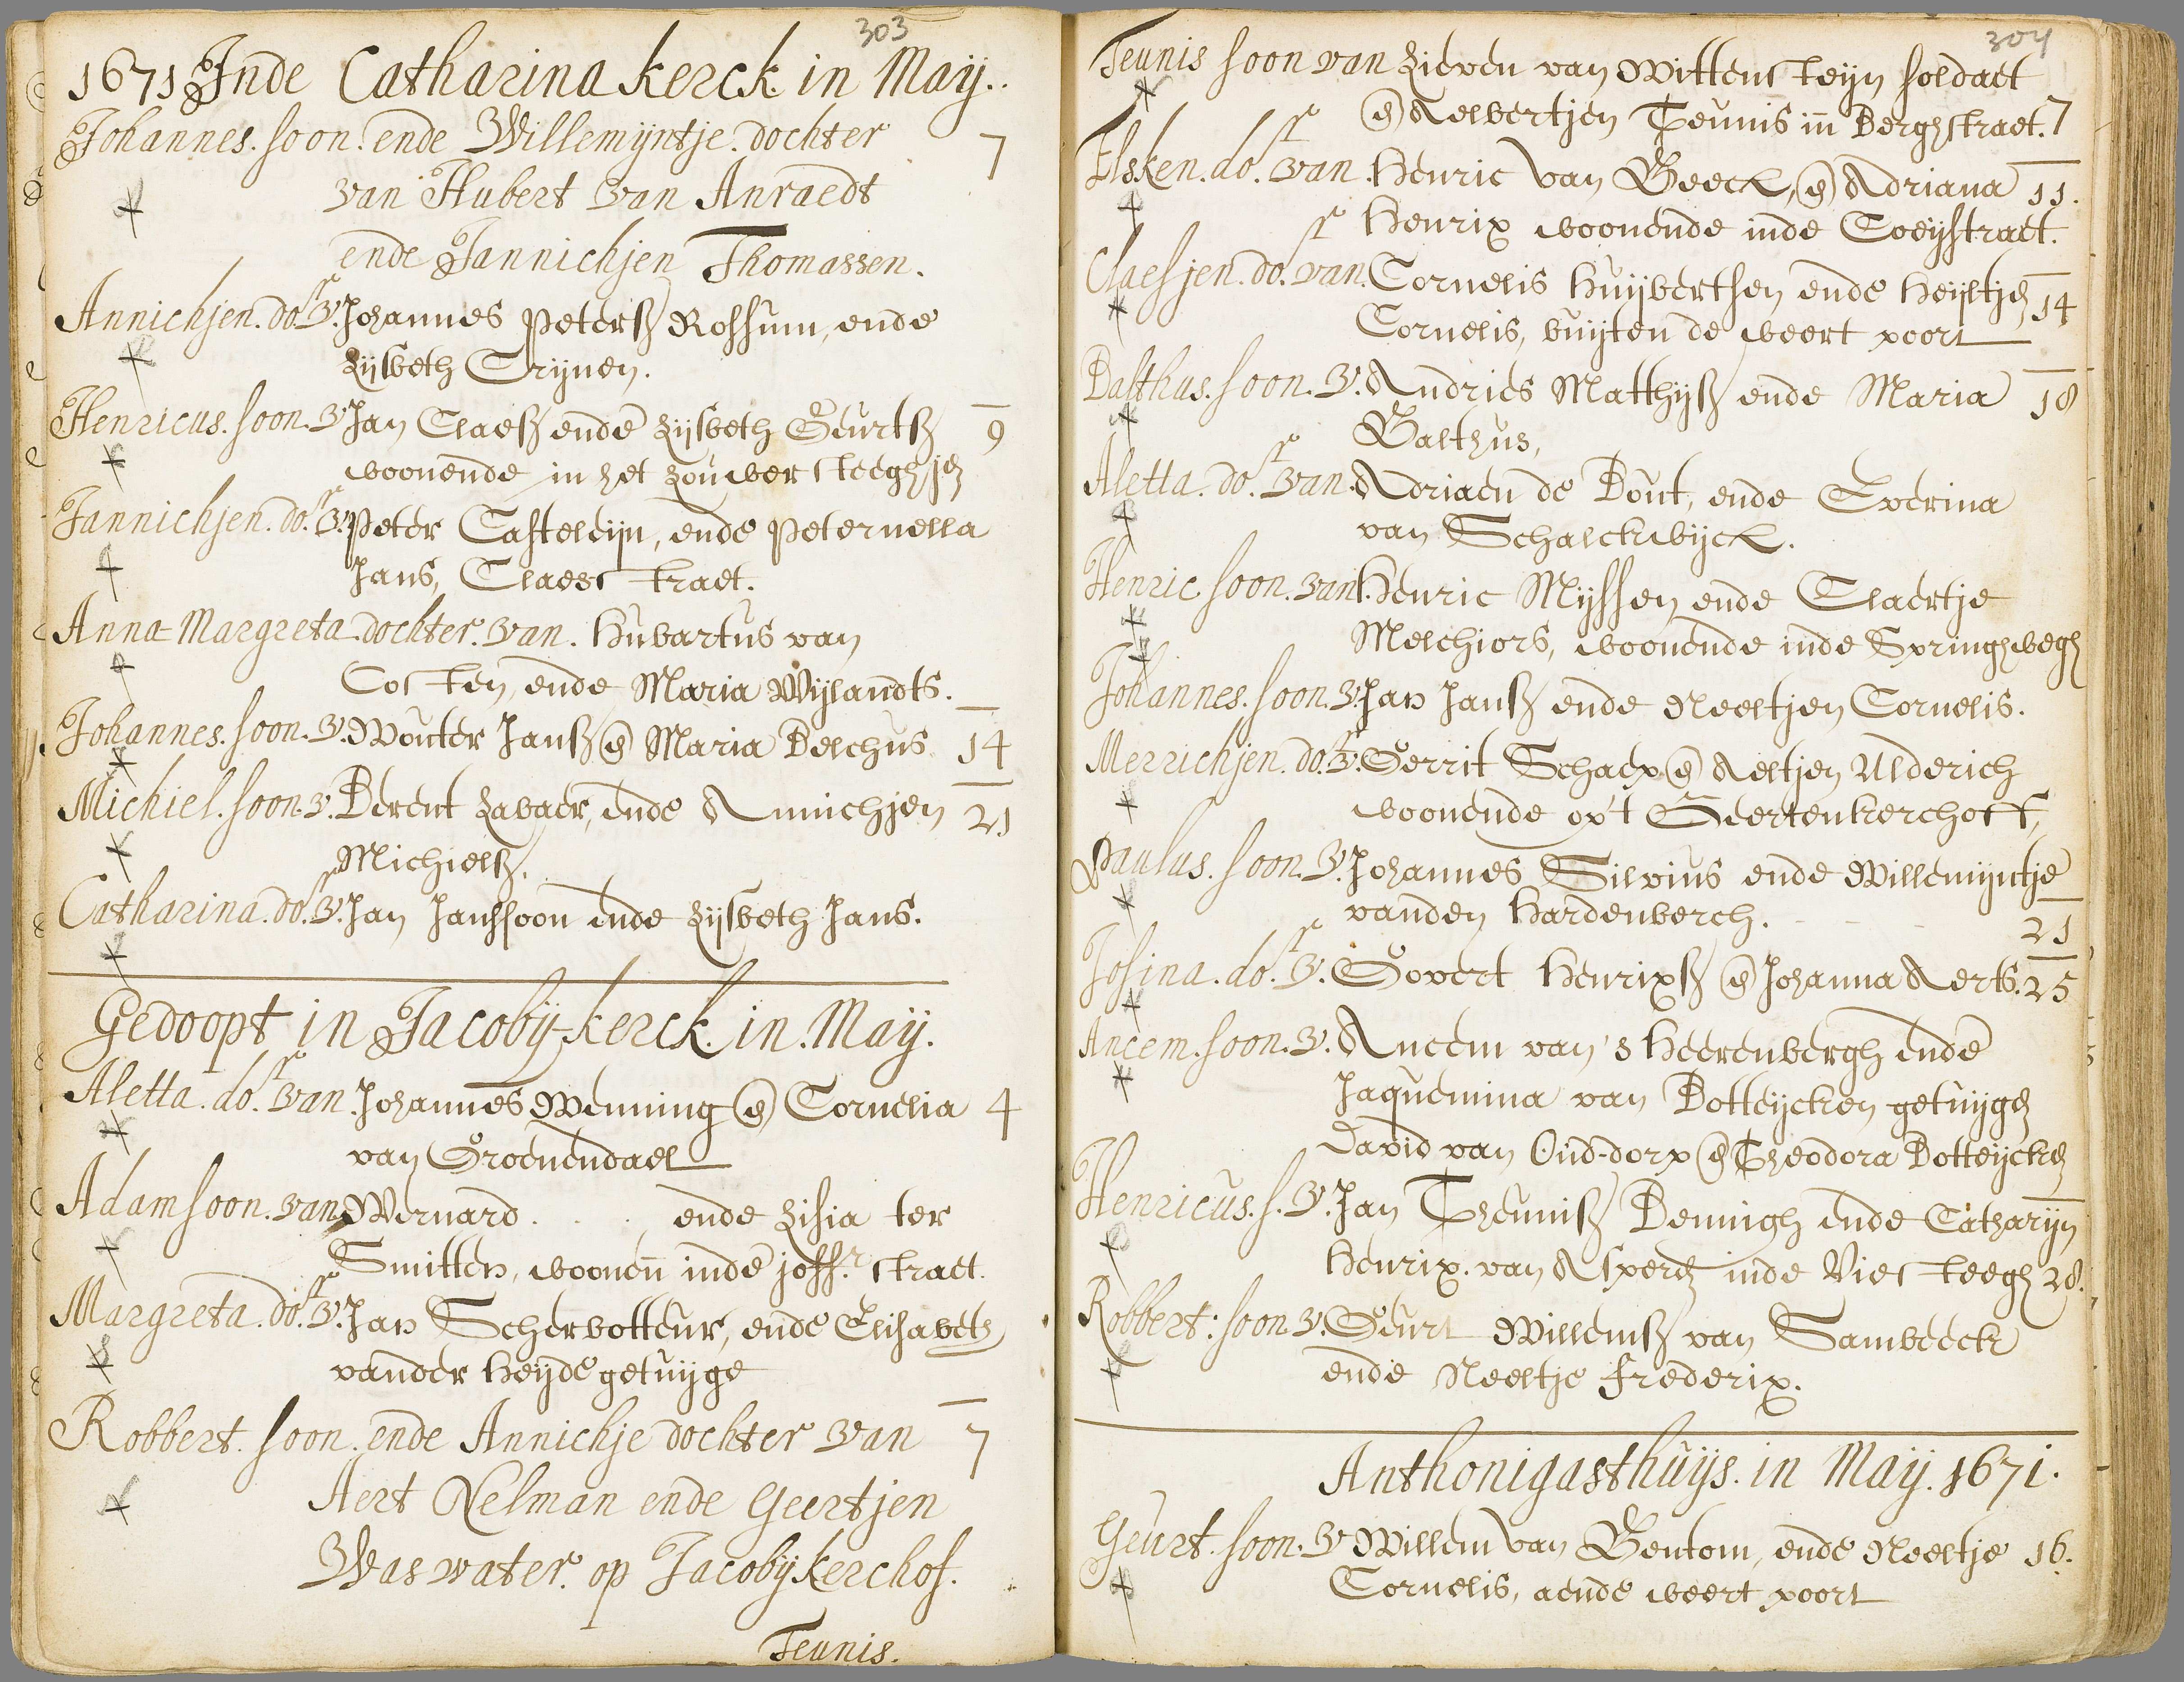 303
1671 Inde Catharina kerck in Maij.
Johannes. soon. ende Willemijntje. dochter 7
van Hubert van Anraedt
ende Jannichjen Thomassen.
Annichjen. dor. v. Johannes Peterss Rossum, ende
Lijsbeth Crijnen.
Henricus. soon. v. Jan Claess ende Lijsbeth Geurtss 9
woonende in het Zouwer steeghjen
Jannichjen. dor. v. Peter Casteleijn, ende Peternella
Jans, Claesstraet.
Anna Margreta dochter. van. Hubartus van
Costen, ende Maria Wijlandts.
Johannes. soon. v. Wouter Janss en Maria Belchus 14
Michiel. soon. v. Berent Zavaer, ende Annichjen 21
Michielss.
Catharina. dor. v. Jan Janssoon ende Lijsbeth Jans.
Gedoopt in Jacobij-kerck. in. Maij.
Aletta. dor. van. Johannes Wenning en Cornelia 4
van Groenendael
Adam soon. van Wernard . . . ende Lisia ter
Smitten, woonen inde joffr. straet.
Margreta. dor. v. Jan Scherbotteur, ende Elisabeth
vander Heijde getuijge
Robbert. soon. ende Annichje dochter van 7
Aert Nelman ende Geertjen
Waswater. op Jacobij kerchof.
Teunis.
304
Teunis soon van Lieven van Wittensteijn soldaet
en Aelbertjen Teunis in Berghstraet. 7
Elsken. dor. van. Henric van Beeck, en Adriana 11.
Henrix woonende inde Coeijstraet.
Claesjen. dor. van. Cornelis Huijbertsen ende Heijltjen 14
Cornelis, buijten de weert poort
Balthus. soon. v. Andries Matthijss ende Maria 18
Balthus,
Aletta. dor. van. Adriaen de Bout, ende Everina
van Schalckwijck.
Henric soon. van. Henric Mijssen ende Claertje
Melchiors, woonende inde Springhwegh
Johannes. soon. v. Jan Janss ende Neeltjen Cornelis.
Merrichjen. dor. v. Gerrit Schaep en Aeltjen Ulderich
woonende op't Geertenkerchoff,
Paulus. soon. v. Johannes Silvius ende Willemijntje
vanden Hardenberch. 21
Josina. dor. v. Govert Henrixss en Johanna Aerts. 25
Ancem. soon. v. Ancem van 's Heerenbergh ende
Jaquemina van Botteijcken getuijgen
David van Oud-dorp en Theodora Botteijcken
Henricus. s. v. Jan Theuniss Benningh ende Catharijn
Henrix. van Asperen inde Viesteegh 28.
Robbert: soon v. Geurt Willemss van Sambeeck
ende Neeltje Frederix.
Anthonigasthuijs. in Maij. 1671.
Geurt. soon. v Willem van Bentom, ende Neeltje 16.
Cornelis, aende weert poort